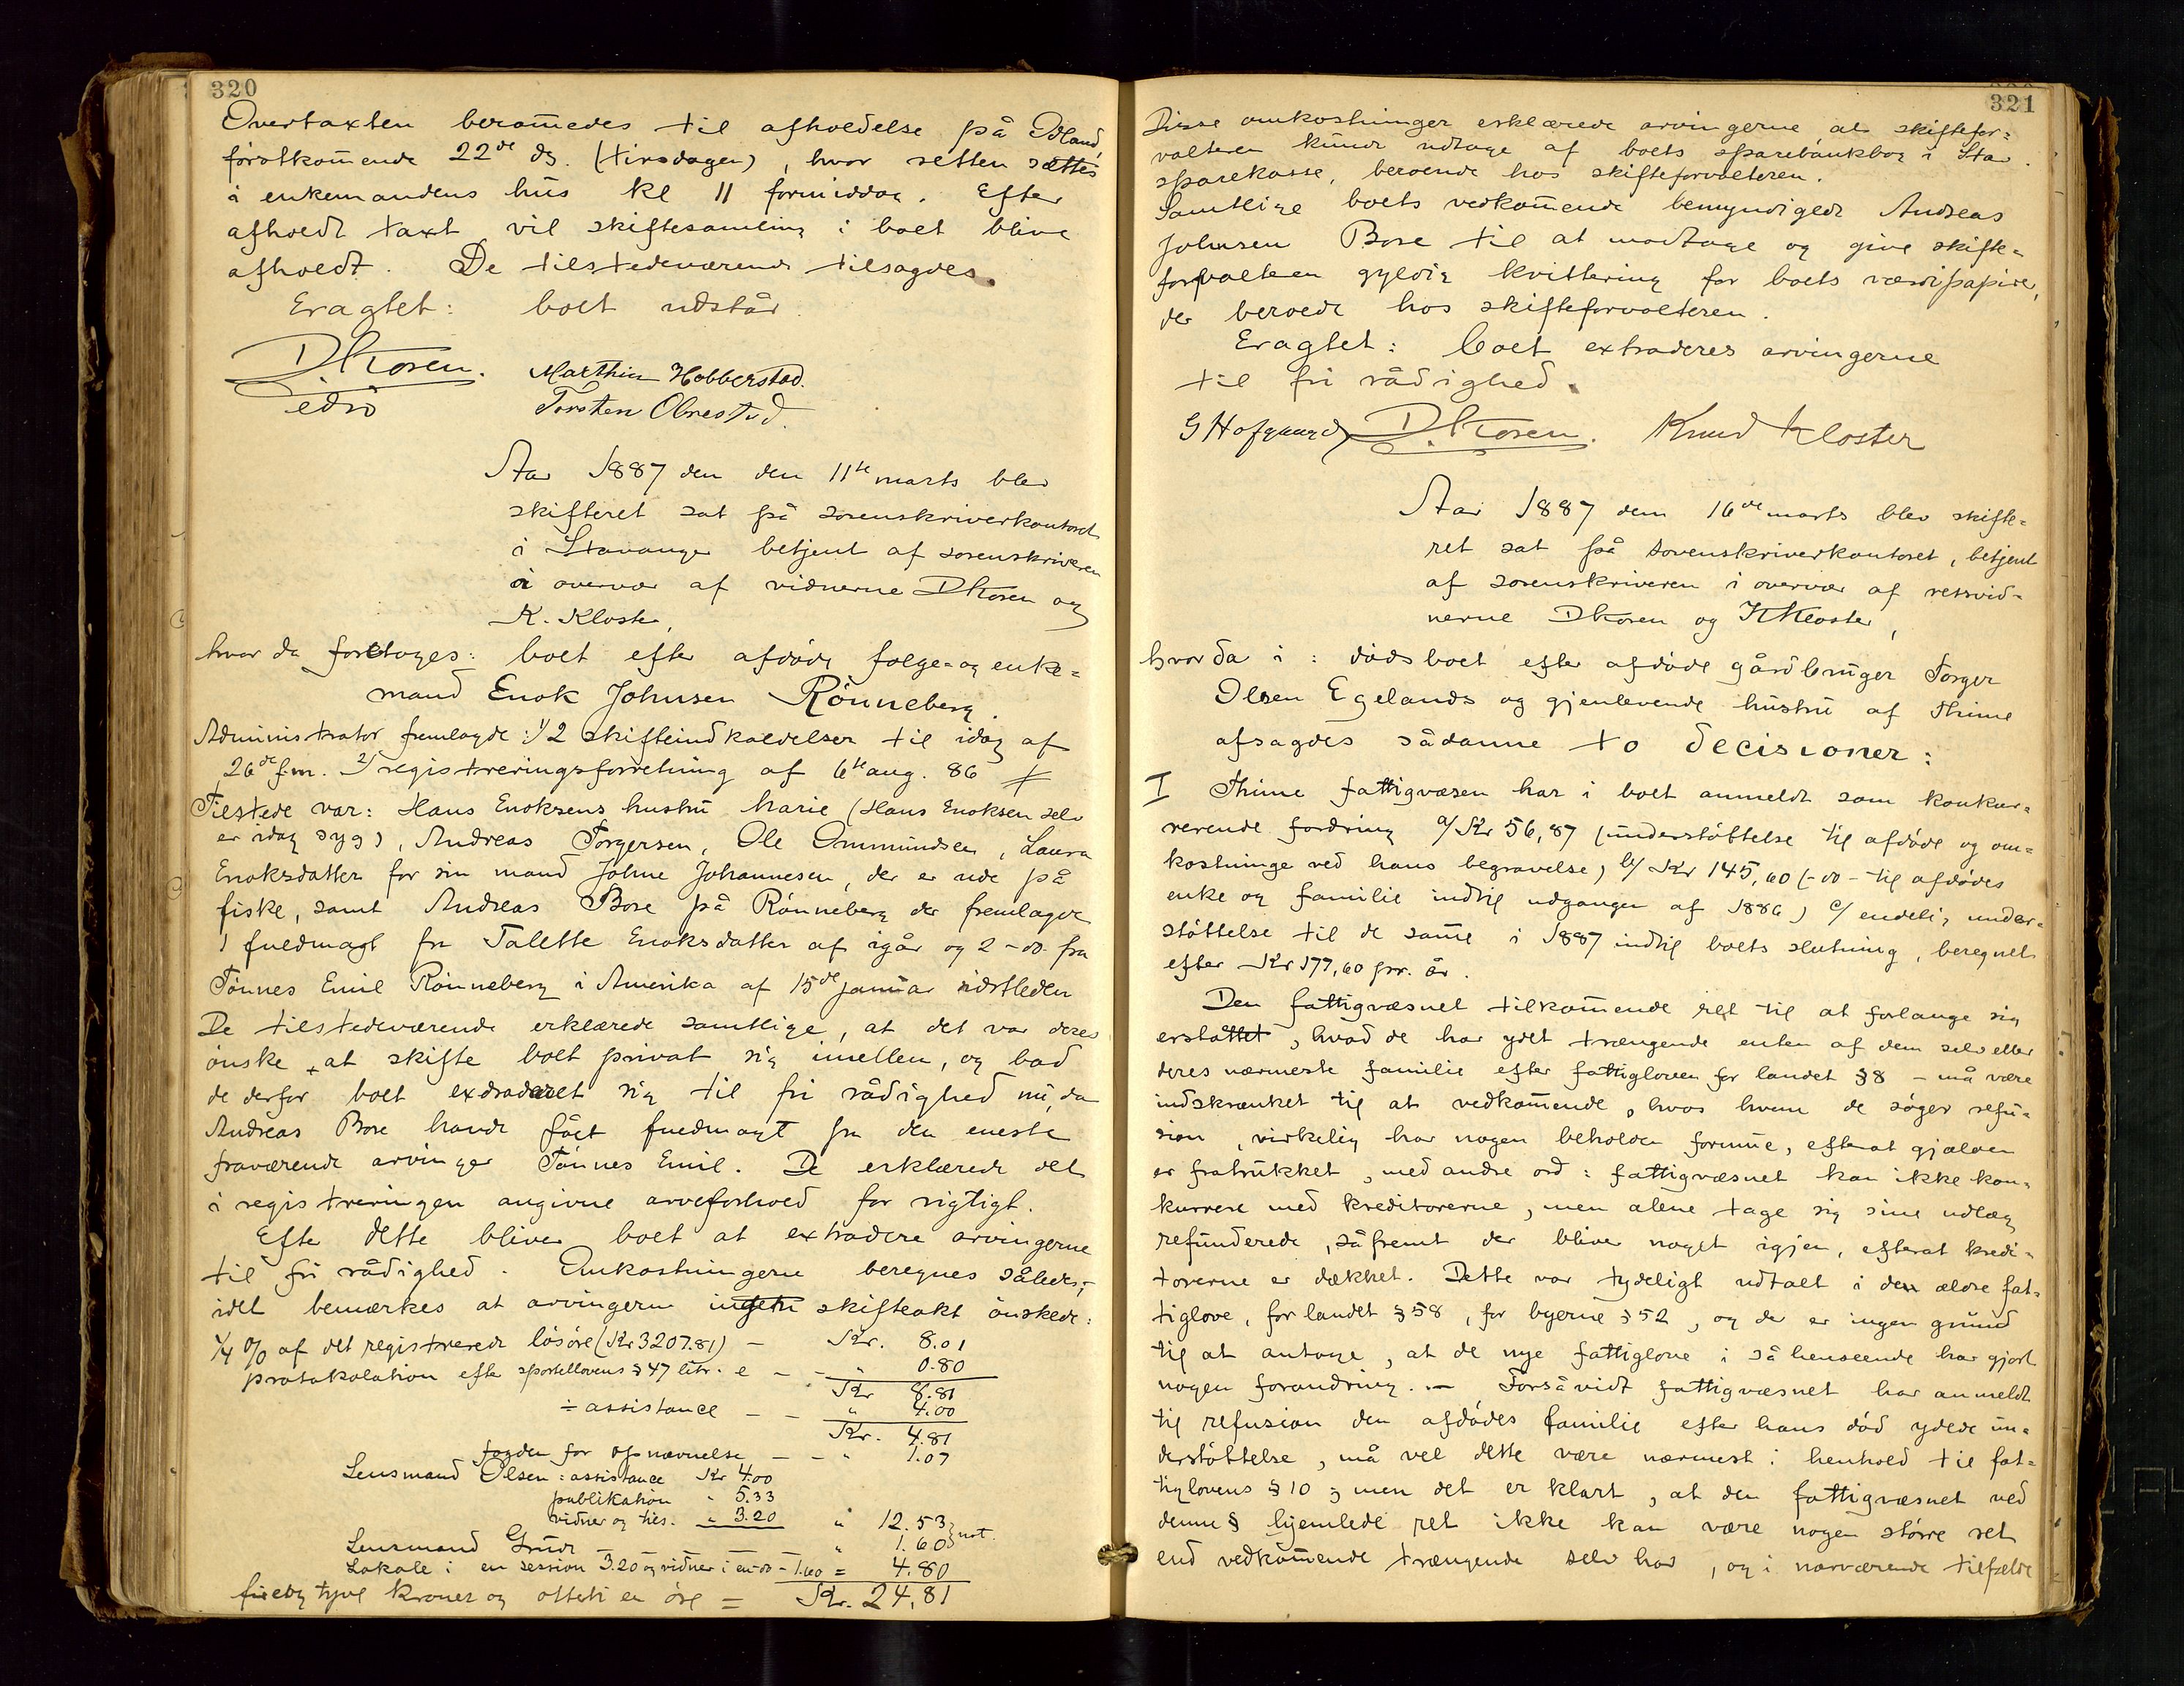 320
Overtaxten beramedes til afholdelse på Ødland,
førstkommende 22de ds. (tirsdagen), hvor retten sættes
i enkemandens hus kl 11 formiddag. Efter
afholdt taxt vil skiftesamling i boet blive
afholdt. De tilstedeværende tilsagdes.
Eragtet: boet udstår.
DKoren. Marthin Hobberstad.
edsv Torsten Obrestad.
Aar 1887 den den 11te marts blev
skifteret sat på sorenskriverkontoret
i Stavanger betjent af sorenskriveren
i overvær af vidnerne DKoren og
K. Kloster,
hvor da foretoges: boet efter afdøde følge- og enke=
mand Enok Johnsen Rönneberg.
Administrator fremlagde: 1/ 2 skifteindkaldelser til idag af
26de f.m. 2/ registreringsforretning af 6te aug. 86
Tilstede var: Hans Enoksens hustru Marie (Hans Enoksen selv
er idag syg), Andreas Torgersen, Ole Ommundsen, Laura
Enoksdatter for sin mand Johne Johannesen, der er ude på
fiske, samt Andreas Bore på Rönneberg der fremlagde
1 fuldmagt fra Talette Enoksdatter af igår og 2 - do. fra
Tönnes Emil Rönneberg i Amerika af 15de januar sidstleden
De tilstedeværende erklærede samtlige, at det var deres
önske at skifte boet privat sig imellem, og bad
de derfor boet exdraderet sig til fri rådighed nu, da
Andreas Bore havde fået fuldmagt fra den eneste
fraværende arvinger Tönnes Emil. De erklærede det
i registreringen angivne arveforhold for rigtigt.
Efter dette bliver boet at extradere arvingerne
til fri rådighed. Omkostningerne beregnes således,
idet bemærkes at arvingerne ingen skifteakt önskede:
1/4 % af det registrerede lösöre (Kr 3207.81) — Kr. 8.01
protokolation efter sportellovens § 47 litr. e — - " 0.80
Kr 8.81
÷ assistance — — " 4.00
Kr. 4.81
fogden for opnævnelse — - " 1.07
Lensmand Olsen: assistance Kr 4.00
publikation " 5.33
vidner og tils. " 3.20 " 12.53
Lensmand Grude — — " 1.60 } not.
Lokale i en session 3.20 og vidner i en do - 1.60 = 4.80
fireog tyve kroner og otteti en öre = Kr. 24,81
321
Disse omkostninger erklærede arvingerne at skiftefor=
valteren kunde udtage af boets sparebankbog i Stav.
sparekasse, beroende hos skifteforvalteren.
Samtlige boets vedkommende bemyndigede Andreas
Johnsen Bore til at modtage og give skifte=
forvalteren gyldig kvittering for boets værdipapirer,
der beroede hos skifteforvalteren.
Eragtet: boet extraderes arvingerne
til fri rådighed.
G Hofgaard DKoren. Knud Kloster
Aar 1887 den 16de marts blev skifte=
ret sat på sorenskriverkontoret, betjent
af sorenskriveren i overvær af retsvid=
nerne DKoren og KKloster,
hvor da i: dödsboet efter afdöde gårdbruger Torger
Olsen Egelands og gjenlevende hustru af Thime
afsagdes sådanne to decisioner:
I Thime fattigvæsen har i boet anmeldt som konkur=
rerende fordring a/ Kr 56,87 (understöttelse til afdöde og om=
kostninge ved hans begravelse) b/ Kr 145,60 (- do - til afdödes
enke og familie indtil udgangen af 1886) c/ endelig under=
stöttelse til de samme i 1887 indtil boets slutning, beregnet
efter Kr 177,60 pr. år.
Den fattigvæsnet tilkommende ret til at forlange sig
erstattet, hvad de har ydet trængende enten af dem selv eller
deres nærmeste familie efter fattigloven for landet § 8 – må være
indskrænket til at vedkommende, hvos hvem de söger refu=
sion, virkelig har nogen beholden formue, efterat gjælden
er fratrukket, med andre ord: fattigvæsnet kan ikke kon=
kurrere med kreditorerne, men alene tage sig sine udlæg
refunderede, såfremt der bliver noget igjen, efterat kredi=
torerne er dækket. Dette var tydeligt udtalt i den ældre fat=
tiglove, for landet § 58, for byerne § 52, og der er ingen grund
til at antage, at de nye fattiglove i så henseende har gjort
nogen forandring. — Forsåvidt fattigvæsnet har anmeldt
til refusion den afdödes familie efter hans död ydede un=
derstöttelse, må vel dette være nærmest i henhold til fat=
tiglovens § 10; men det er klart, at den fattigvæsnet ved
denne § hjemlede ret ikke kan være nogen större ret
end vedkommende trængende selv har, og i nærværende tilfælde